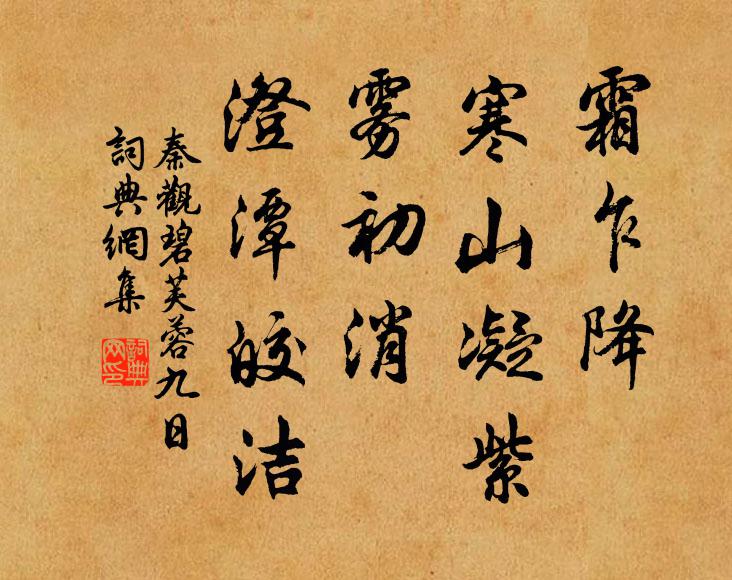 霜乍降
寒山凝紫
雾初消
澄潭皎洁
秦觀碧芙蓉九日
詞典網集
詞典
网印